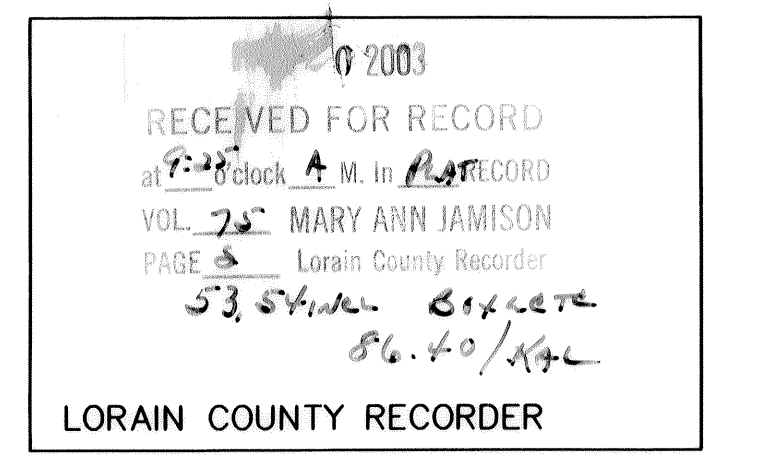 0 2003
RECEIVED FOR RECORD
at 9:25 o'clock A M. In PLAT RECORD
VOL. 75 MARY ANN JAMISON
PAGE Lorain County Recorder
53, 54, INCL
86.40/KAL
LORAIN COUNTY RECORDER